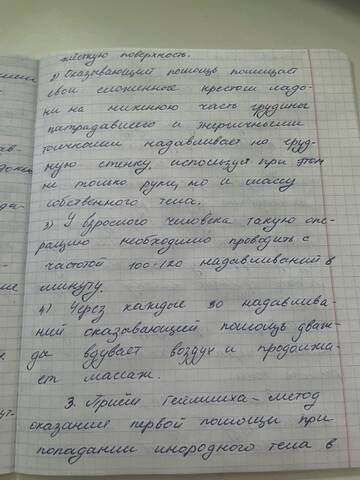 жёсткую поверхность.
2) Оказывающий помощь помещает
свои сложенные крестом ладо-
ни на нижнюю часть грудины
патрадавшего и энергичными
толчками надавливает на груд-
ную стенку, используя при этом
не только руки, но и массу
собственного тела.
3) У взрослого человека такую опе-
рацию необходимо проводить с
частотой 100-120 надавливаний в
минуту.
4) Через каждые 30 надавлива-
ний оказывающий помощь дваж-
ды вдувает воздух и продолжа-
ет массаж.
3. Приём Геймлиха - метод
оказание первой помощи при
попадании инородного тела в